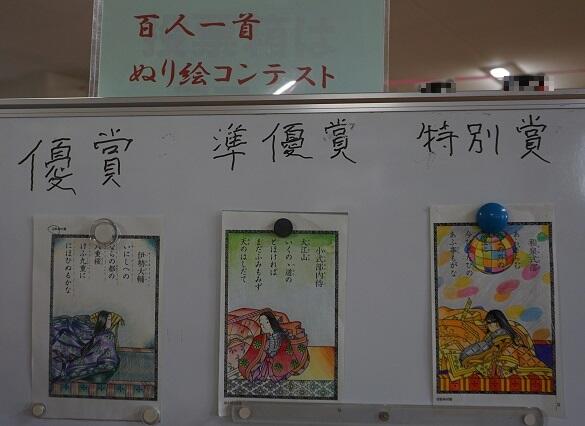 百人一首
ぬり絵コンテスト
優賞
準優賞
特別賞
伊勢大輔
いにしへの
ならの都の
八重桜
けふ九重に
にほひぬるかな
小式部内侍
大江山
いくの〻道の
とほければ
まだふみもみず
天のはしだて
和泉式部
あふ事もがな